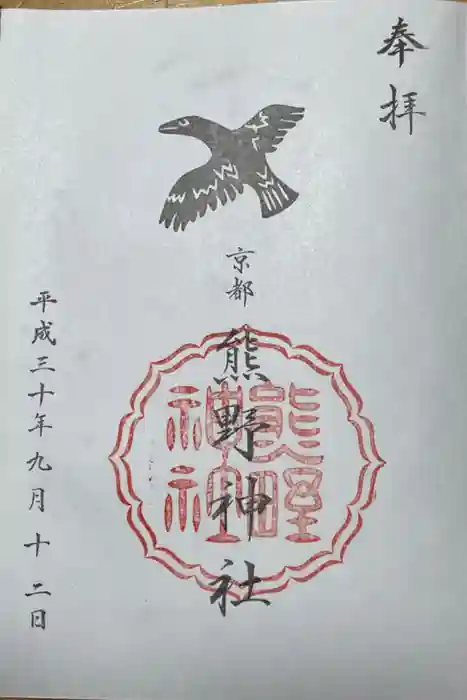 奉拝
京都
熊野神社
熊野
神社
平成三十年九月十二日